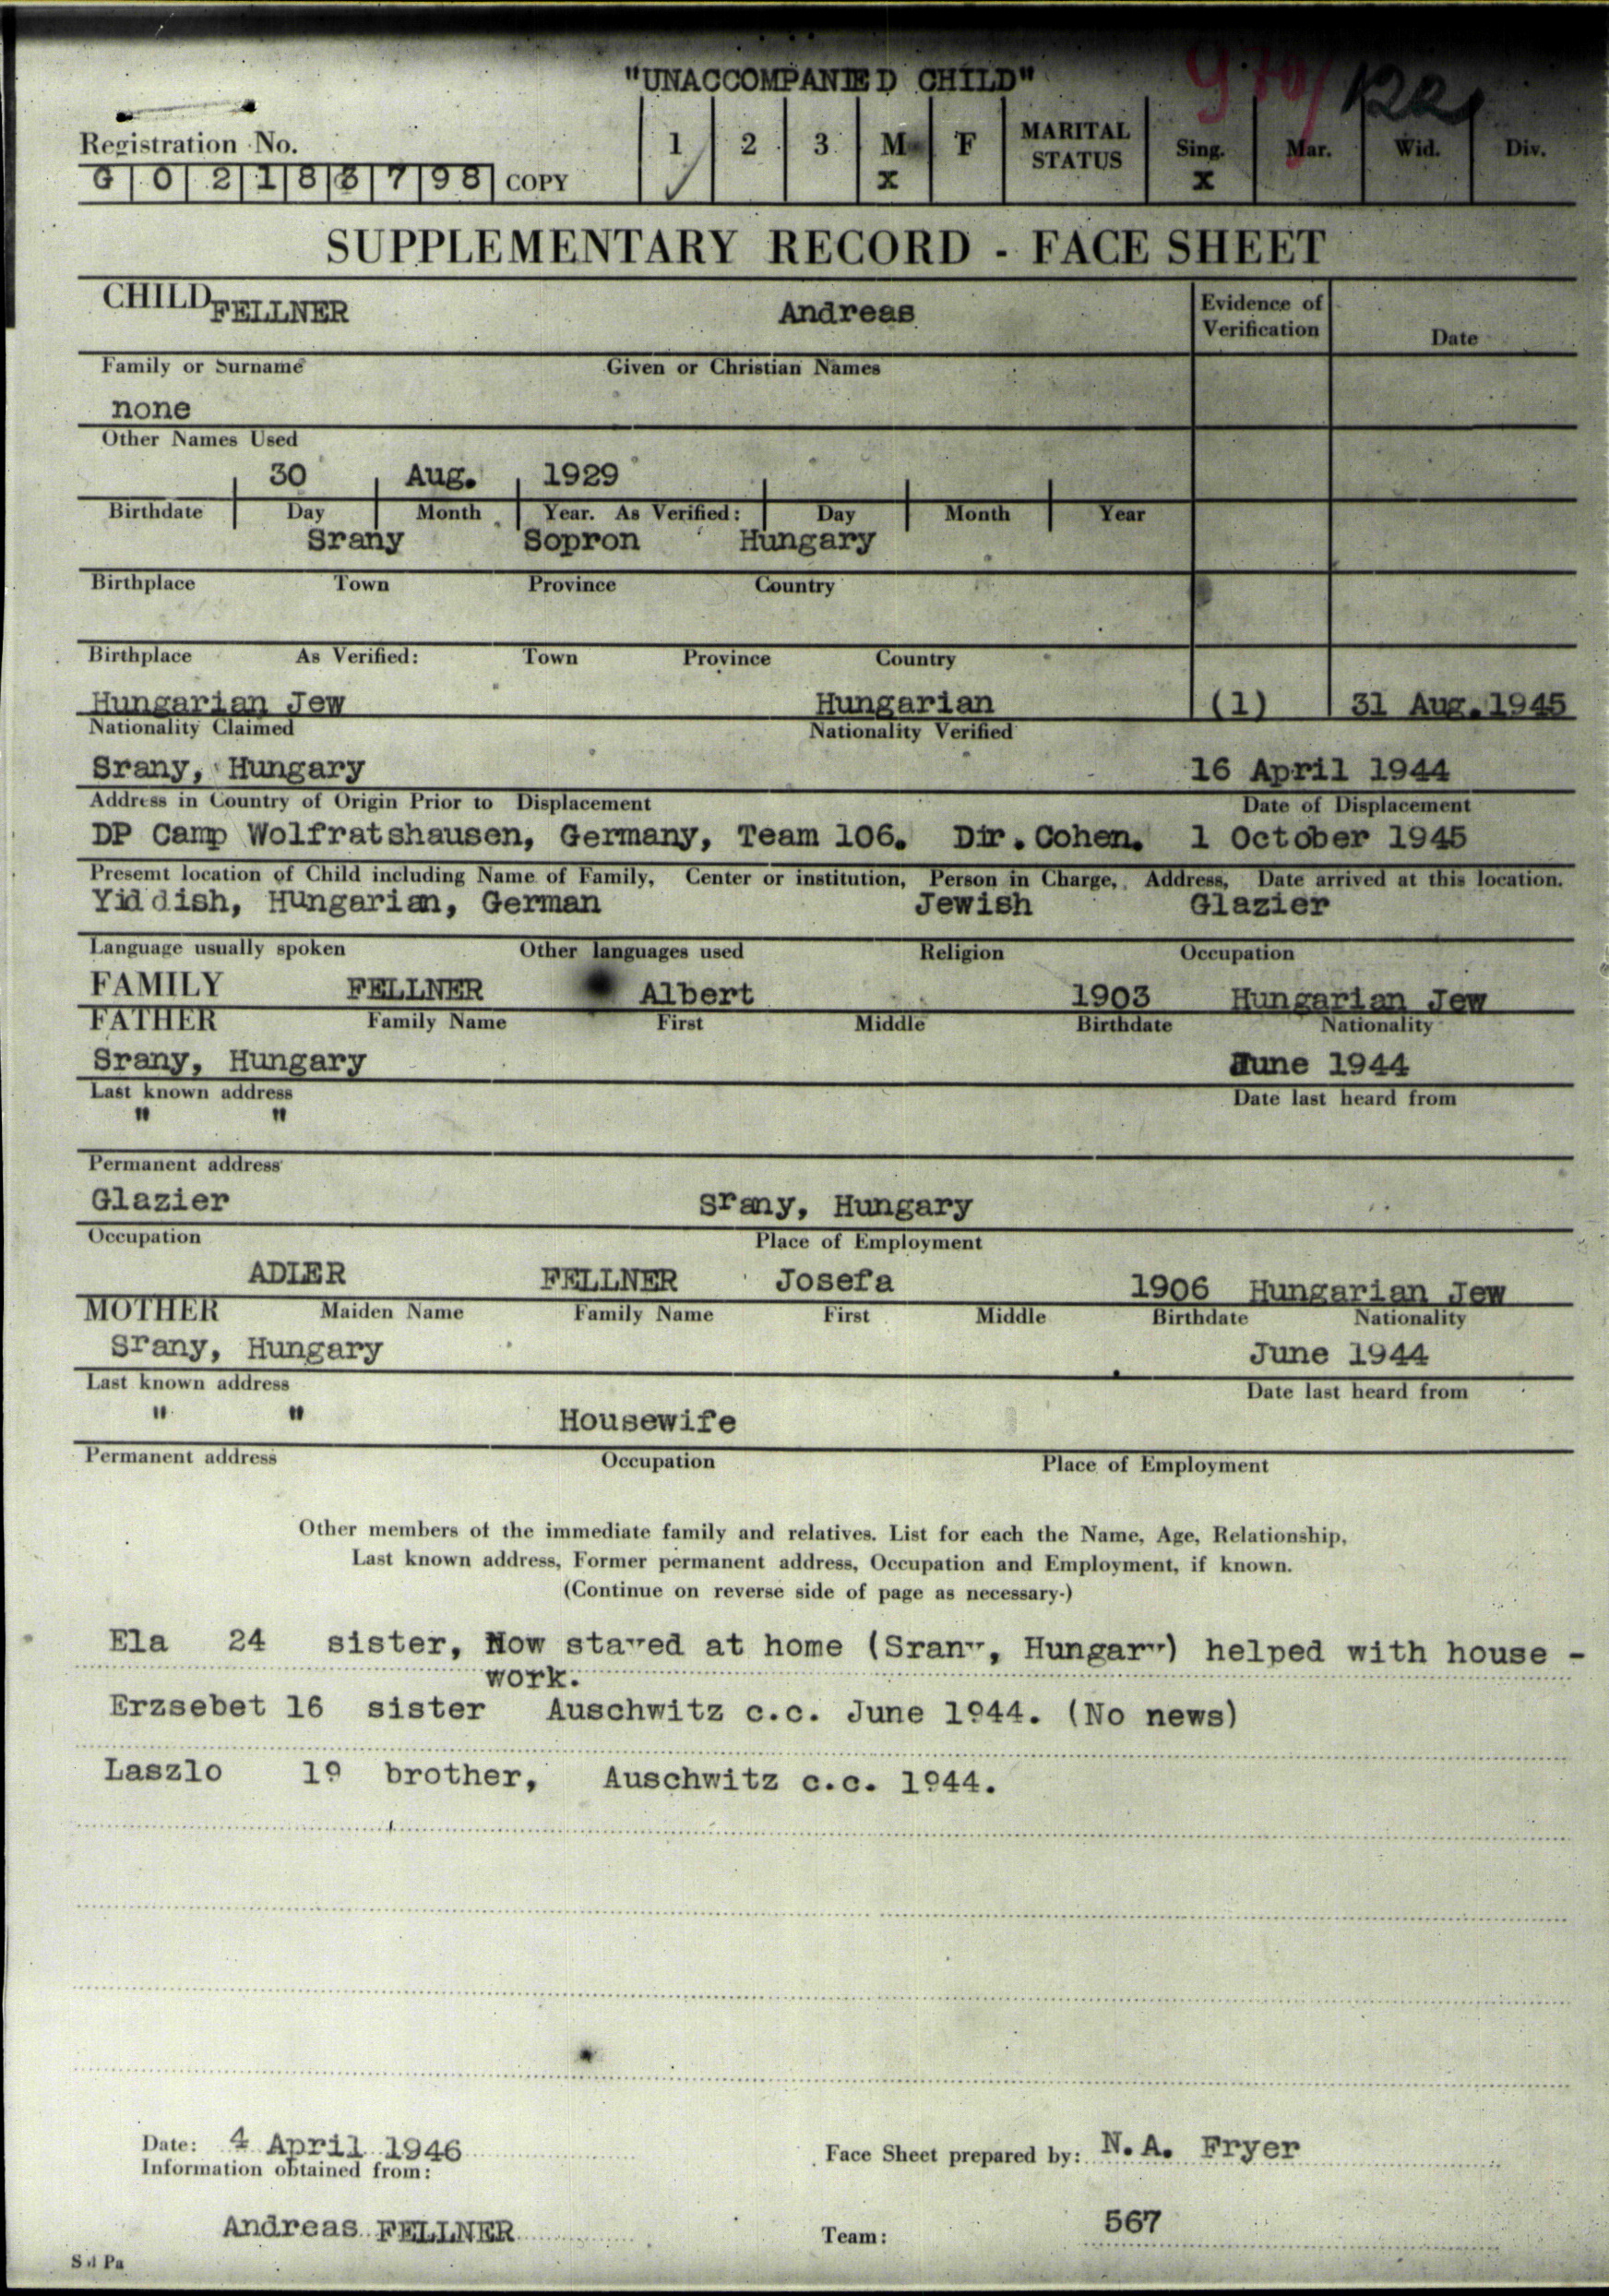 "UNACCOMPANIED CHILD"
Registration No.
G 0 2 1 8 8 7 9 8 COPY
1 2 3 M F MARITAL STATUS Sing. Mar. Wid. Div.
X X
SUPPLEMENTARY RECORD - FACE SHEET
CHILD FELLNER Andreas Evidence of Verification Date
Family or Surname Given or Christian Names
none
Other Names Used
30 Aug. 1929
Birthdate Day Month Year. As Verified: Day Month Year
Srany Sopron Hungary
Birthplace Town Province Country
Birthplace As Verified: Town Province Country
Hungarian Jew Hungarian (1) 31 Aug. 1945
Nationality Claimed Nationality Verified
Srany, Hungary 16 April 1944
Address in Country of Origin Prior to Displacement Date of Displacement
DP Camp Wolfratshausen, Germany, Team 106. Dir. Cohen. 1 October 1945
Presemt location of Child including Name of Family, Center or institution, Person in Charge, Address, Date arrived at this location.
Yiddish, Hungarian, German Jewish Glazier
Language usually spoken Other languages used Religion Occupation
FAMILY FELLNER Albert 1903 Hungarian Jew
FATHER Family Name First Middle Birthdate Nationality
Srany, Hungary June 1944
Last known address Date last heard from
" "
Permanent address
Glazier Srany, Hungary
Occupation Place of Employment
ADLER FELLNER Josefa 1906 Hungarian Jew
MOTHER Maiden Name Family Name First Middle Birthdate Nationality
Srany, Hungary June 1944
Last known address Date last heard from
" " Housewife
Permanent address Occupation Place of Employment
Other members of the immediate family and relatives. List for each the Name, Age, Relationship,
Last known address, Former permanent address, Occupation and Employment, if known.
(Continue on reverse side of page as necessary-)
Ela 24 sister, Now stayed at home (Srany, Hungary) helped with house -
work.
Erzsebet 16 sister Auschwitz c.c. June 1944. (No news)
Laszlo 19 brother, Auschwitz c.c. 1944.
Date: 4 April 1946 Face Sheet prepared by: N. A. Fryer
Information obtained from:
Andreas FELLNER Team: 567